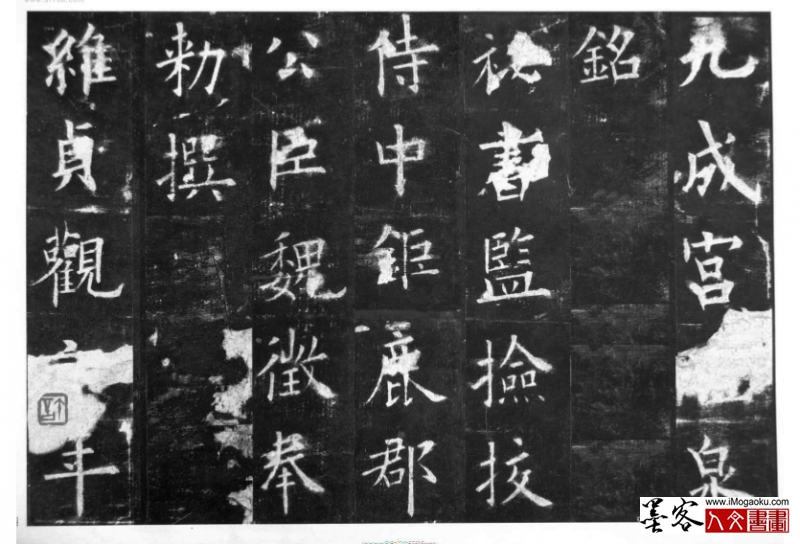 九成宮泉
銘
祕書監撿挍
侍中鉅鹿郡
公臣魏徵奉
勅撰
維貞觀年
www.iMogaoku.com
墨客人文書畫